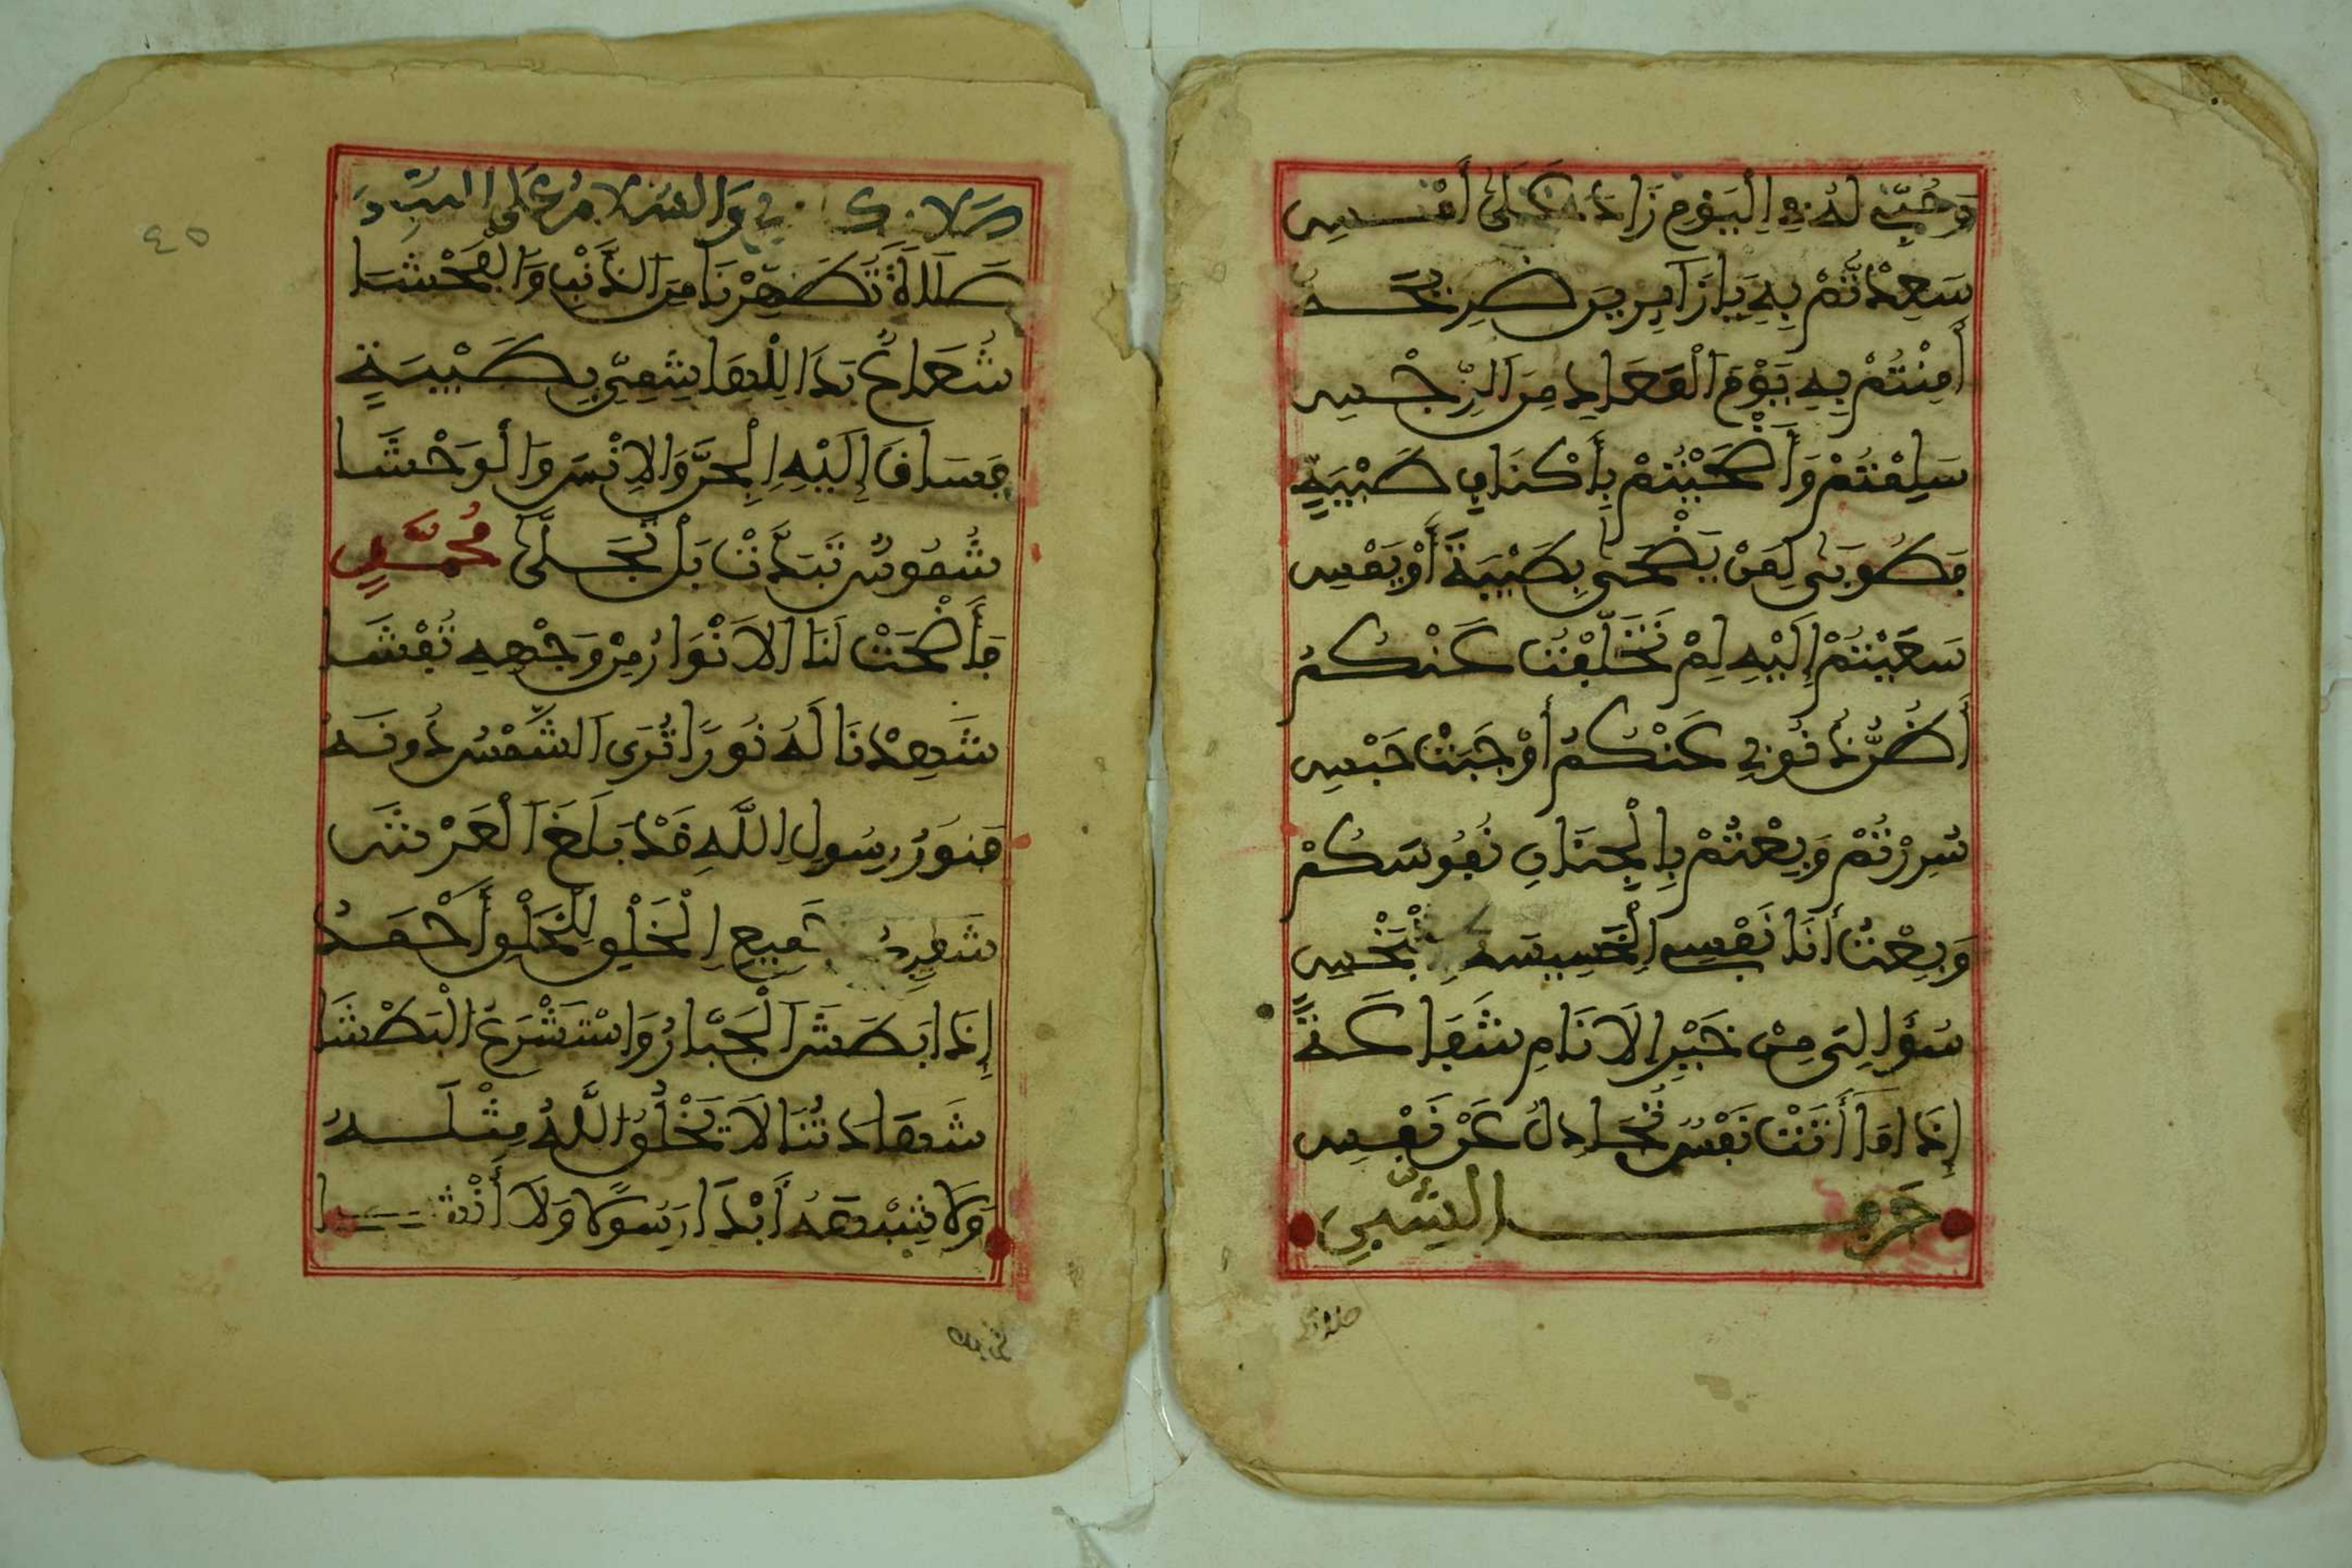 وَحُبِّي لَهُ فِي الْيَوْمِ زَادَ عَلَى أَمْسِ
سَعِدْتُمْ بِهِ يَا زَايِرِينَ ضَرِيحَهُ
أَمِنْتُمْ بِهِ يَوْمَ الْمَعَادِ مِنَ الرِّجْسِ
سَلِمْتُمْ وَأَصْحَبْتُمْ بِأَكْنَافِ طَيْبَةٍ
فَطُوبَى لِمَنْ يَضْحَى بِطَيْبَةَ أَوْ يَمْسِ
سَعَيْتُمْ إِلَيْهِ لِمْ تَخَلَّفْتُ عَنْكُمْ
أَظُنُّ ذُنُوبِي عَنْكُمْ أَوْجَبَتْ حَبْسِ
سُرِرْتُمْ وَبِعْتُمْ بِالْجِنَانِ نُفُوسَكُمْ
وَبِعْتُ أَنَا نَفْسِي الْخَسِيسَةَ بِالْبَخْسِ
سُؤَالِي مِنْ خَيْرِ الْأَنَامِ شَفَاعَةً
إِذَا مَا أَتَتْ نَفْسٌ تُجَادِلُ عَنْ نَفْسِ
حَرْفُ الشِّينِ
صَلَا فِي وَالسَّلَامُ عَلَى
صَلَاةً تُطَهِّرْنَا مِنَ الذَّنْبِ وَالْفَحْشَا
شُعَاعٌ بَدَا لِلْهَاشِمِيِّ بِطَيْبَةٍ
فَسَاقَ إِلَيْهِ الْجِنَّ وَالْإِنْسَ وَالْوَحْشَا
شُمُوسٌ تَبَدَّتْ بَلْ تَجَلَّى مُحَمَّدٍ
فَأَضْحَتْ لَنَا الْأَنْوَارُ مِنْ وَجْهِهِ تُفْشَا
شَهِدْنَا لَهُ نُورًا تُرَى الشَّمْسُ دُونَهُ
فَنُورُ رَسُولِ اللَّهِ قَدْ بَلَغَ الْعَرْشَ
شَفِيعُ جَمِيعِ الْخَلْقِ لِلْخَلْقِ أَحْمَدُ
إِذَا بَطَشَ الْجَبَّارُ وَاسْتَشْرَعَ الْبَطْشَا
شَهَادَتُنَا لَا يَخْلُقُ اللَّهُ مِثْلَهُ
وَلَا شِبْهَهُ أَبَدًا رَسُولًا وَلَا أَنْشَا